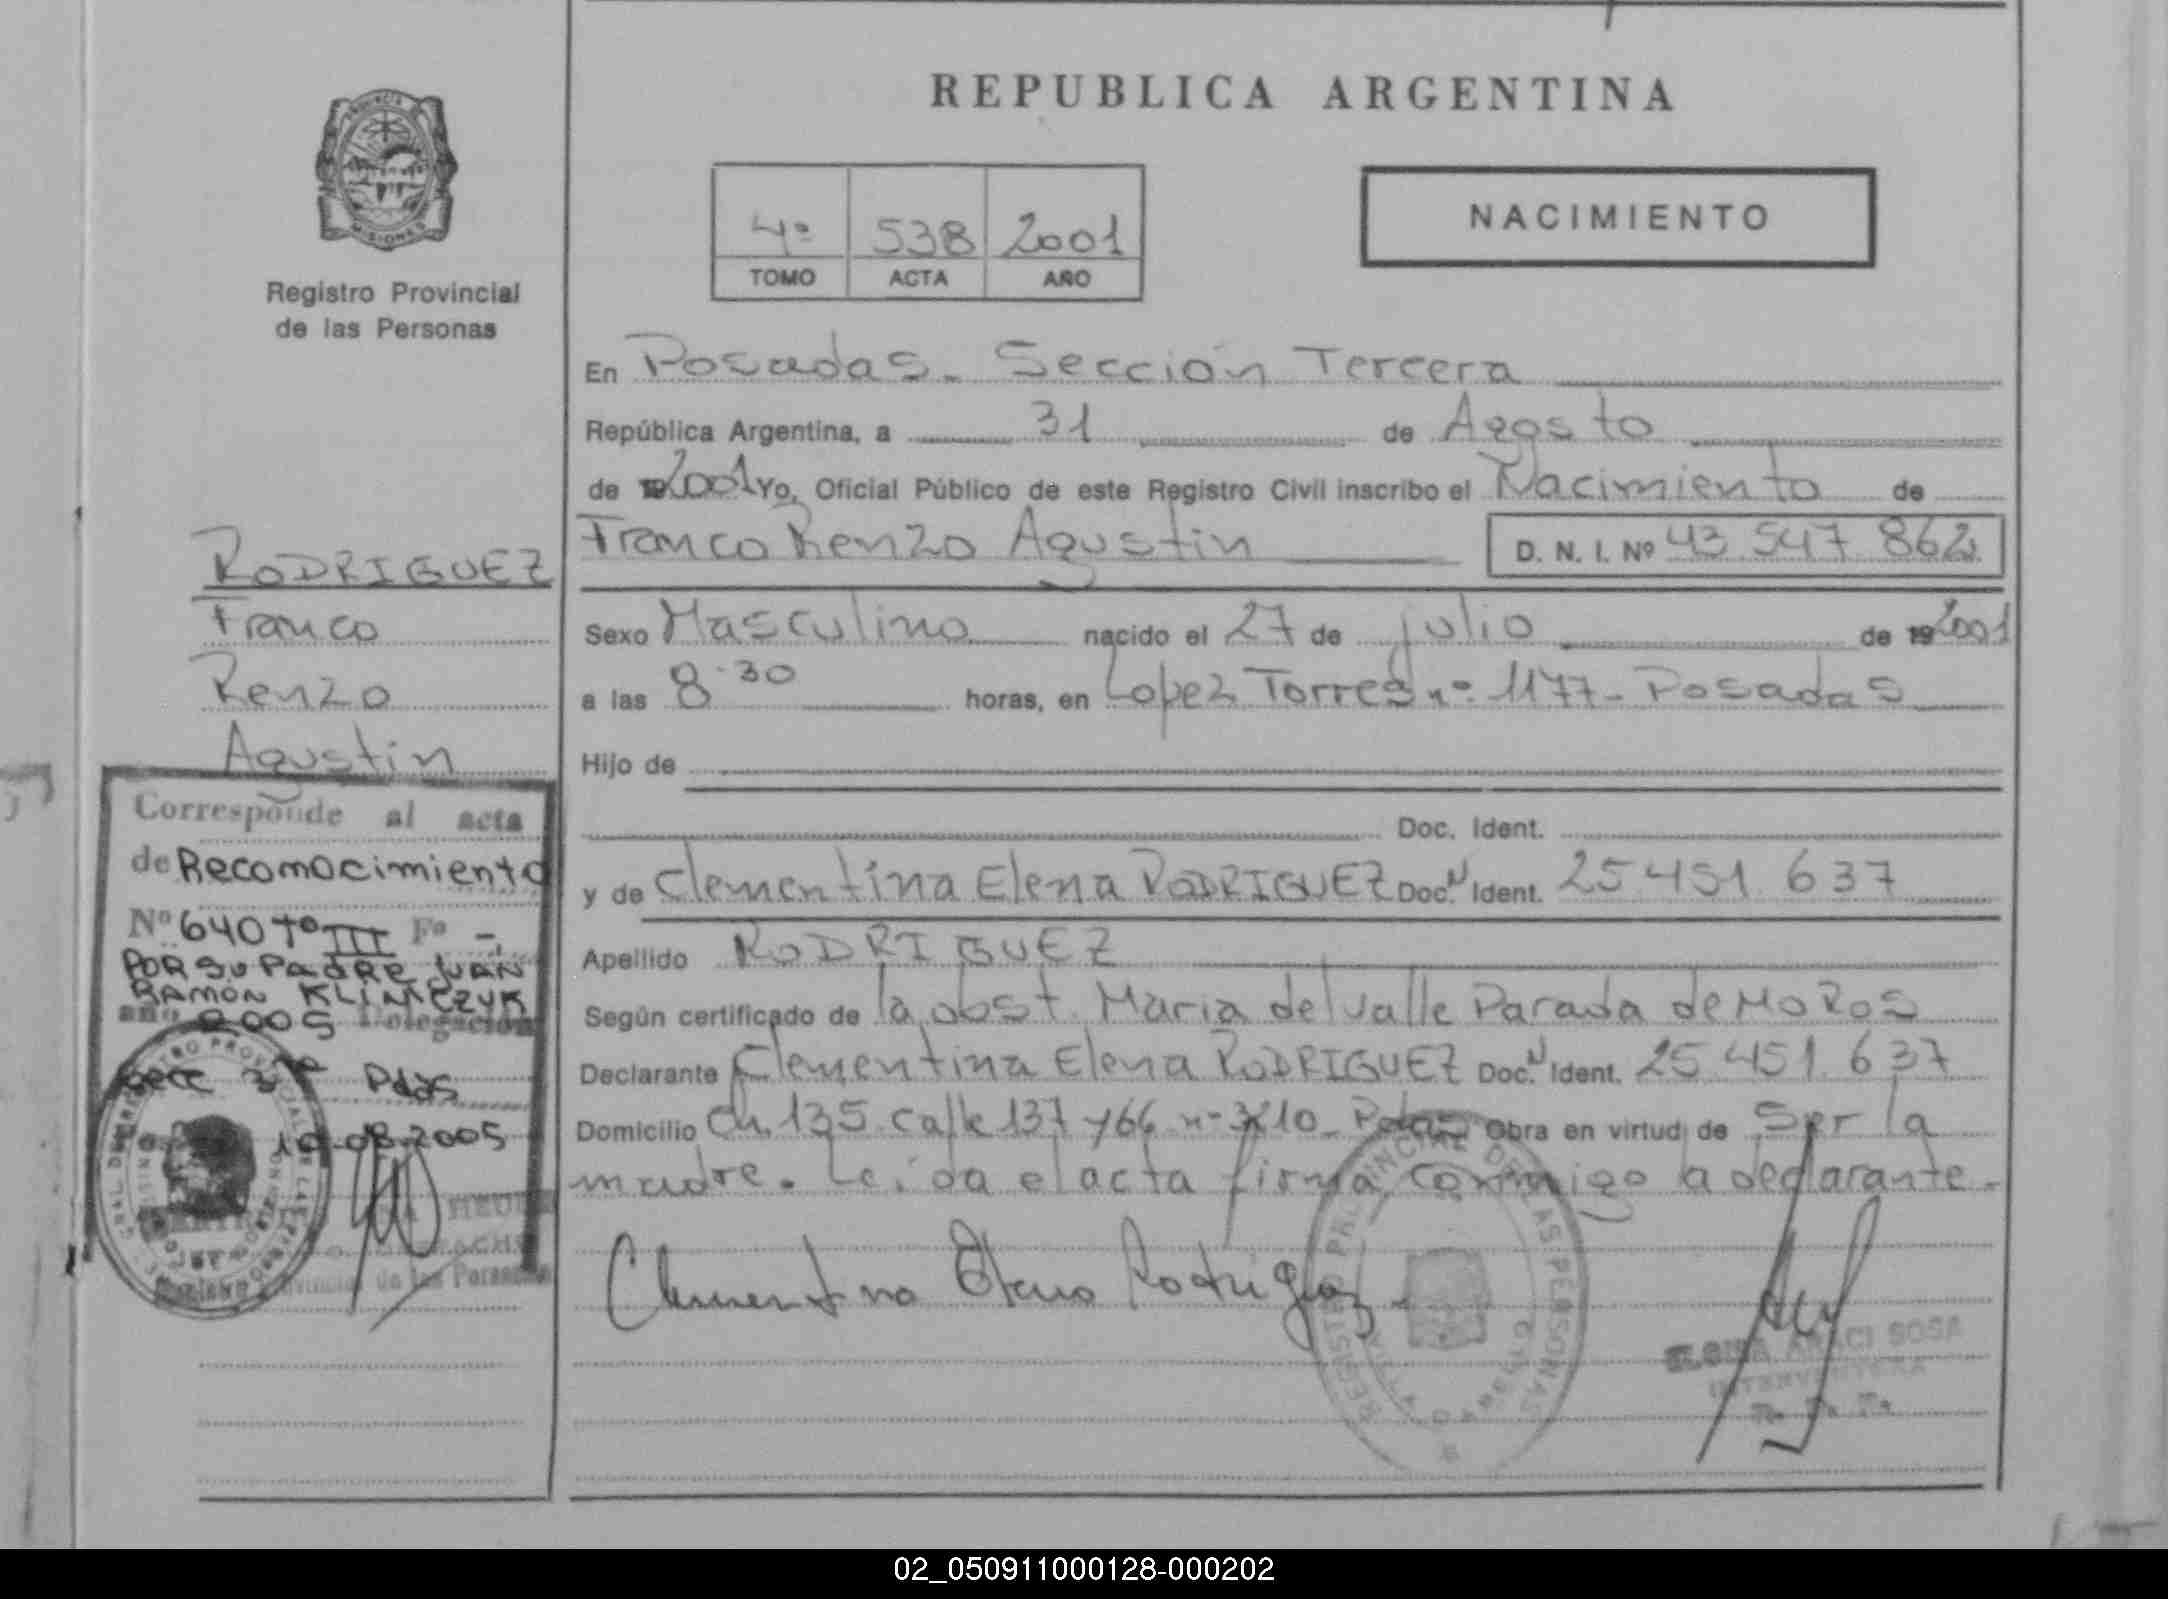 REPUBLICA ARGENTINA
PROVINCIA
MISIONES
Registro Provincial
de las Personas
4º 538 2001
TOMO ACTA AÑO
NACIMIENTO
En Posadas. Sección Tercera
República Argentina, a 31 de Agosto
de 2001 Yo, Oficial Público de este Registro Civil inscribo el Nacimiento de
Franco Renzo Agustin D. N. I. Nº 43 547 862
Sexo Masculino nacido el 27 de julio de 19 2001
a las 8.30 horas, en Lopez Torres nº 1177 - Posadas
Hijo de
Doc. Ident.
y de Clementina Elena RODRIGUEZ Doc. N Ident. 25.451.637
Apellido RODRIGUEZ
Según certificado de la obst. Maria del Valle Parada de MOROS
Declarante Clementina Elena RODRIGUEZ Doc. N Ident. 25.451.637
Domicilio Ch. 135 calle 137 y 66 nº 3210 - Pdas Obra en virtud de Ser la
madre. Leida el acta firma conmigo la declarante.
Clementina Elena Rodriguez
REGISTRO PROVINCIAL DE LAS PERSONAS
ARACI SOSA
INTERVENTORA
R. P. P.
RODRIGUEZ
Franco
Renzo
Agustin
Corresponde al acta
de Reconocimiento
Nº 640 Tº III Fº -
POR SU PADRE JUAN
RAMON KLIMCZUK
año 2005 Delegación
Secc 3ª Pdas
10-08-2005
de las Personas
02_050911000128-000202